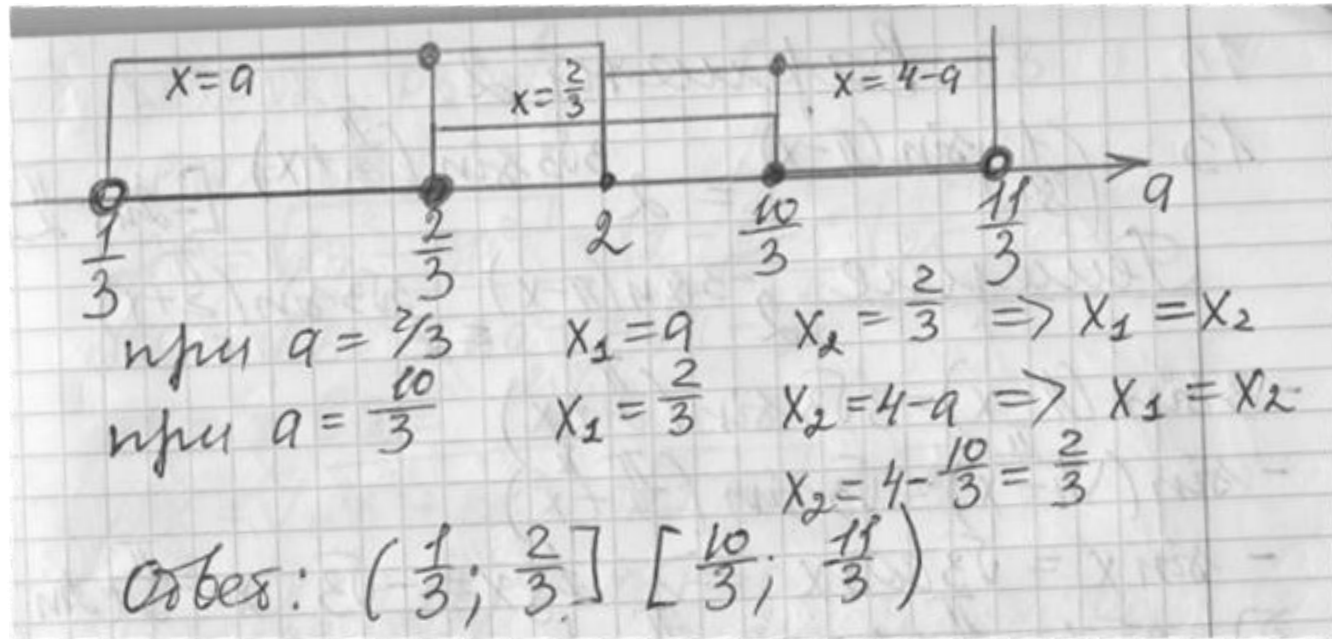 x = a
x = 2/3
x = 4-a
1/3 2/3 2 10/3 11/3 a
при a = 2/3 x₁ = a x₂ = 2/3 => x₁ = x₂
при a = 10/3 x₁ = 2/3 x₂ = 4-a => x₁ = x₂
x₂ = 4 - 10/3 = 2/3
Ответ: (1/3; 2/3] [10/3; 11/3)